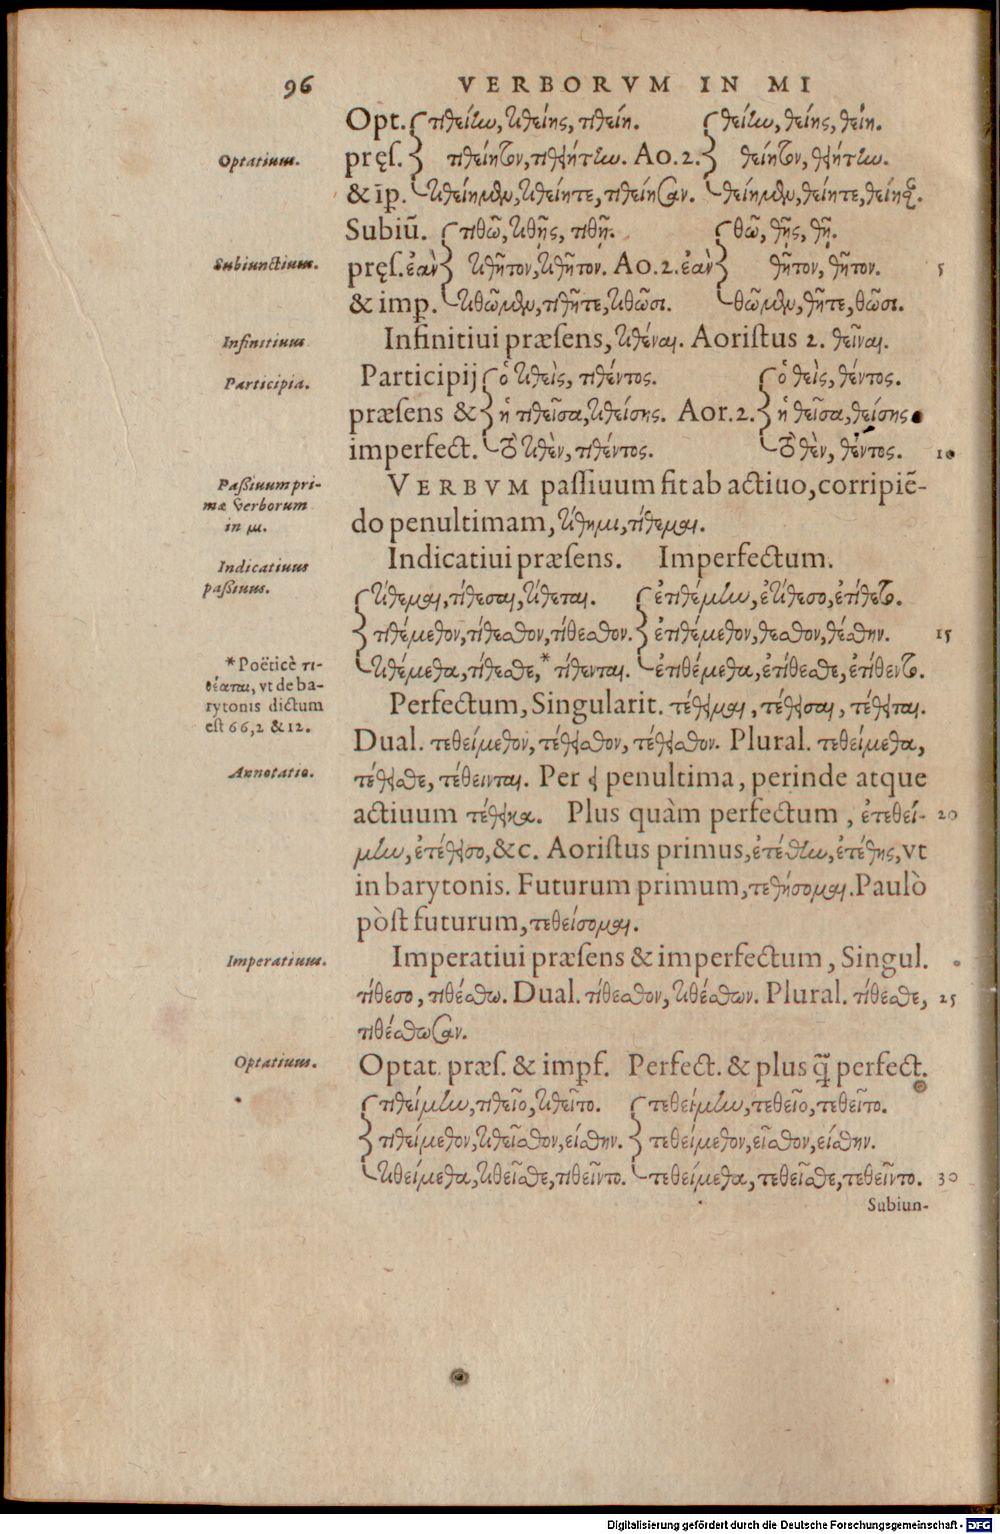 96 VERBORVM IN MI
Opt. τιθείην, τιθείης, τιθείη. θείην, θείης, θείη.
Optatiuus.
pręs. τιθείητον, τιθειήτην. Ao. 2. θείητον, θειήτην.
& īp. τιθείημεν, τιθείητε, τιθείησαν. θείημεν, θείητε, θείησαν.
Subiū. τιθῶ, τιθῇς, τιθῇ. θῶ, θῇς, θῇ.
Subiunctiuus.
pręſ. ἐὰν τιθῆτον, τιθῆτον. Ao. 2. ἐὰν θῆτον, θῆτον. 5
& imp. τιθῶμεν, τιθῆτε, τιθῶσι. θῶμεν, θῆτε, θῶσι.
Infinitiuus
Infinitiui præſens, τιθέναι. Aoriſtus 2. θεῖναι.
Participia.
Participij ὁ τιθεὶς, τιθέντος. ὁ θεὶς, θέντος.
præſens & ἡ τιθεῖσα, τιθείσης. Aor. 2. ἡ θεῖσα, θείσης
imperfect. τὸ τιθὲν, τιθέντος. τὸ θὲν, θέντος. 10
Paſſiuum pri-
mæ verborum
in μι.
VERBVM paſſiuum fit ab actiuo, corripiē-
do penultimam, τίθημι, τίθεμαι.
Indicatiuus
paſſiuus.
Indicatiui præſens. Imperfectum.
τίθεμαι, τίθεσαι, τίθεται. ἐτιθέμην, ἐτίθεσο, ἐτίθετο.
τιθέμεθον, τίθεσθον, τίθεσθον. ἐτιθέμεθον, θεσθον, θέσθην. 15
τιθέμεθα, τίθεσθε,* τίθενται. ἐτιθέμεθα, ἐτίθεσθε, ἐτίθεντο.
*Poëticè τι-
θέαται, vt de ba-
rytonis dictum
eſt 66,2 & 12.
Perfectum, Singularit. τέθειμαι, τέθεισαι, τέθειται.
Dual. τεθείμεθον, τέθεισθον, τέθεισθον. Plural. τεθείμεθα,
Annotatio.
τέθεισθε, τέθεινται. Per ει penultima, perinde atque
actiuum τέθεικα. Plus quàm perfectum, ἐτεθεί- 20
μην, ἐτέθεισο, &c. Aoriſtus primus, ἐτέθην, ἐτέθης, vt
in barytonis. Futurum primum, τεθήσομαι. Paulò
pòſt futurum, τεθείσομαι.
Imperatiuus.
Imperatiui præſens & imperfectum, Singul.
τίθεσο, τιθέσθω. Dual. τίθεσθον, τιθέσθων. Plural. τίθεσθε, 25
τιθέσθωσαν.
Optatiuus.
Optat. præſ. & impf. Perfect. & plus q̃ perfect.
τιθείμην, τιθεῖο, τιθεῖτο. τεθείμην, τεθεῖο, τεθεῖτο.
τιθείμεθον, τιθεῖσθον, είσθην. τεθείμεθον, εῖσθον, είσθην.
τιθείμεθα, τιθεῖσθε, τιθεῖντο. τεθείμεθα, τεθεῖσθε, τεθεῖντο. 30
Subiun-
Digitalisierung gefördert durch die Deutsche Forschungsgemeinschaft - DFG